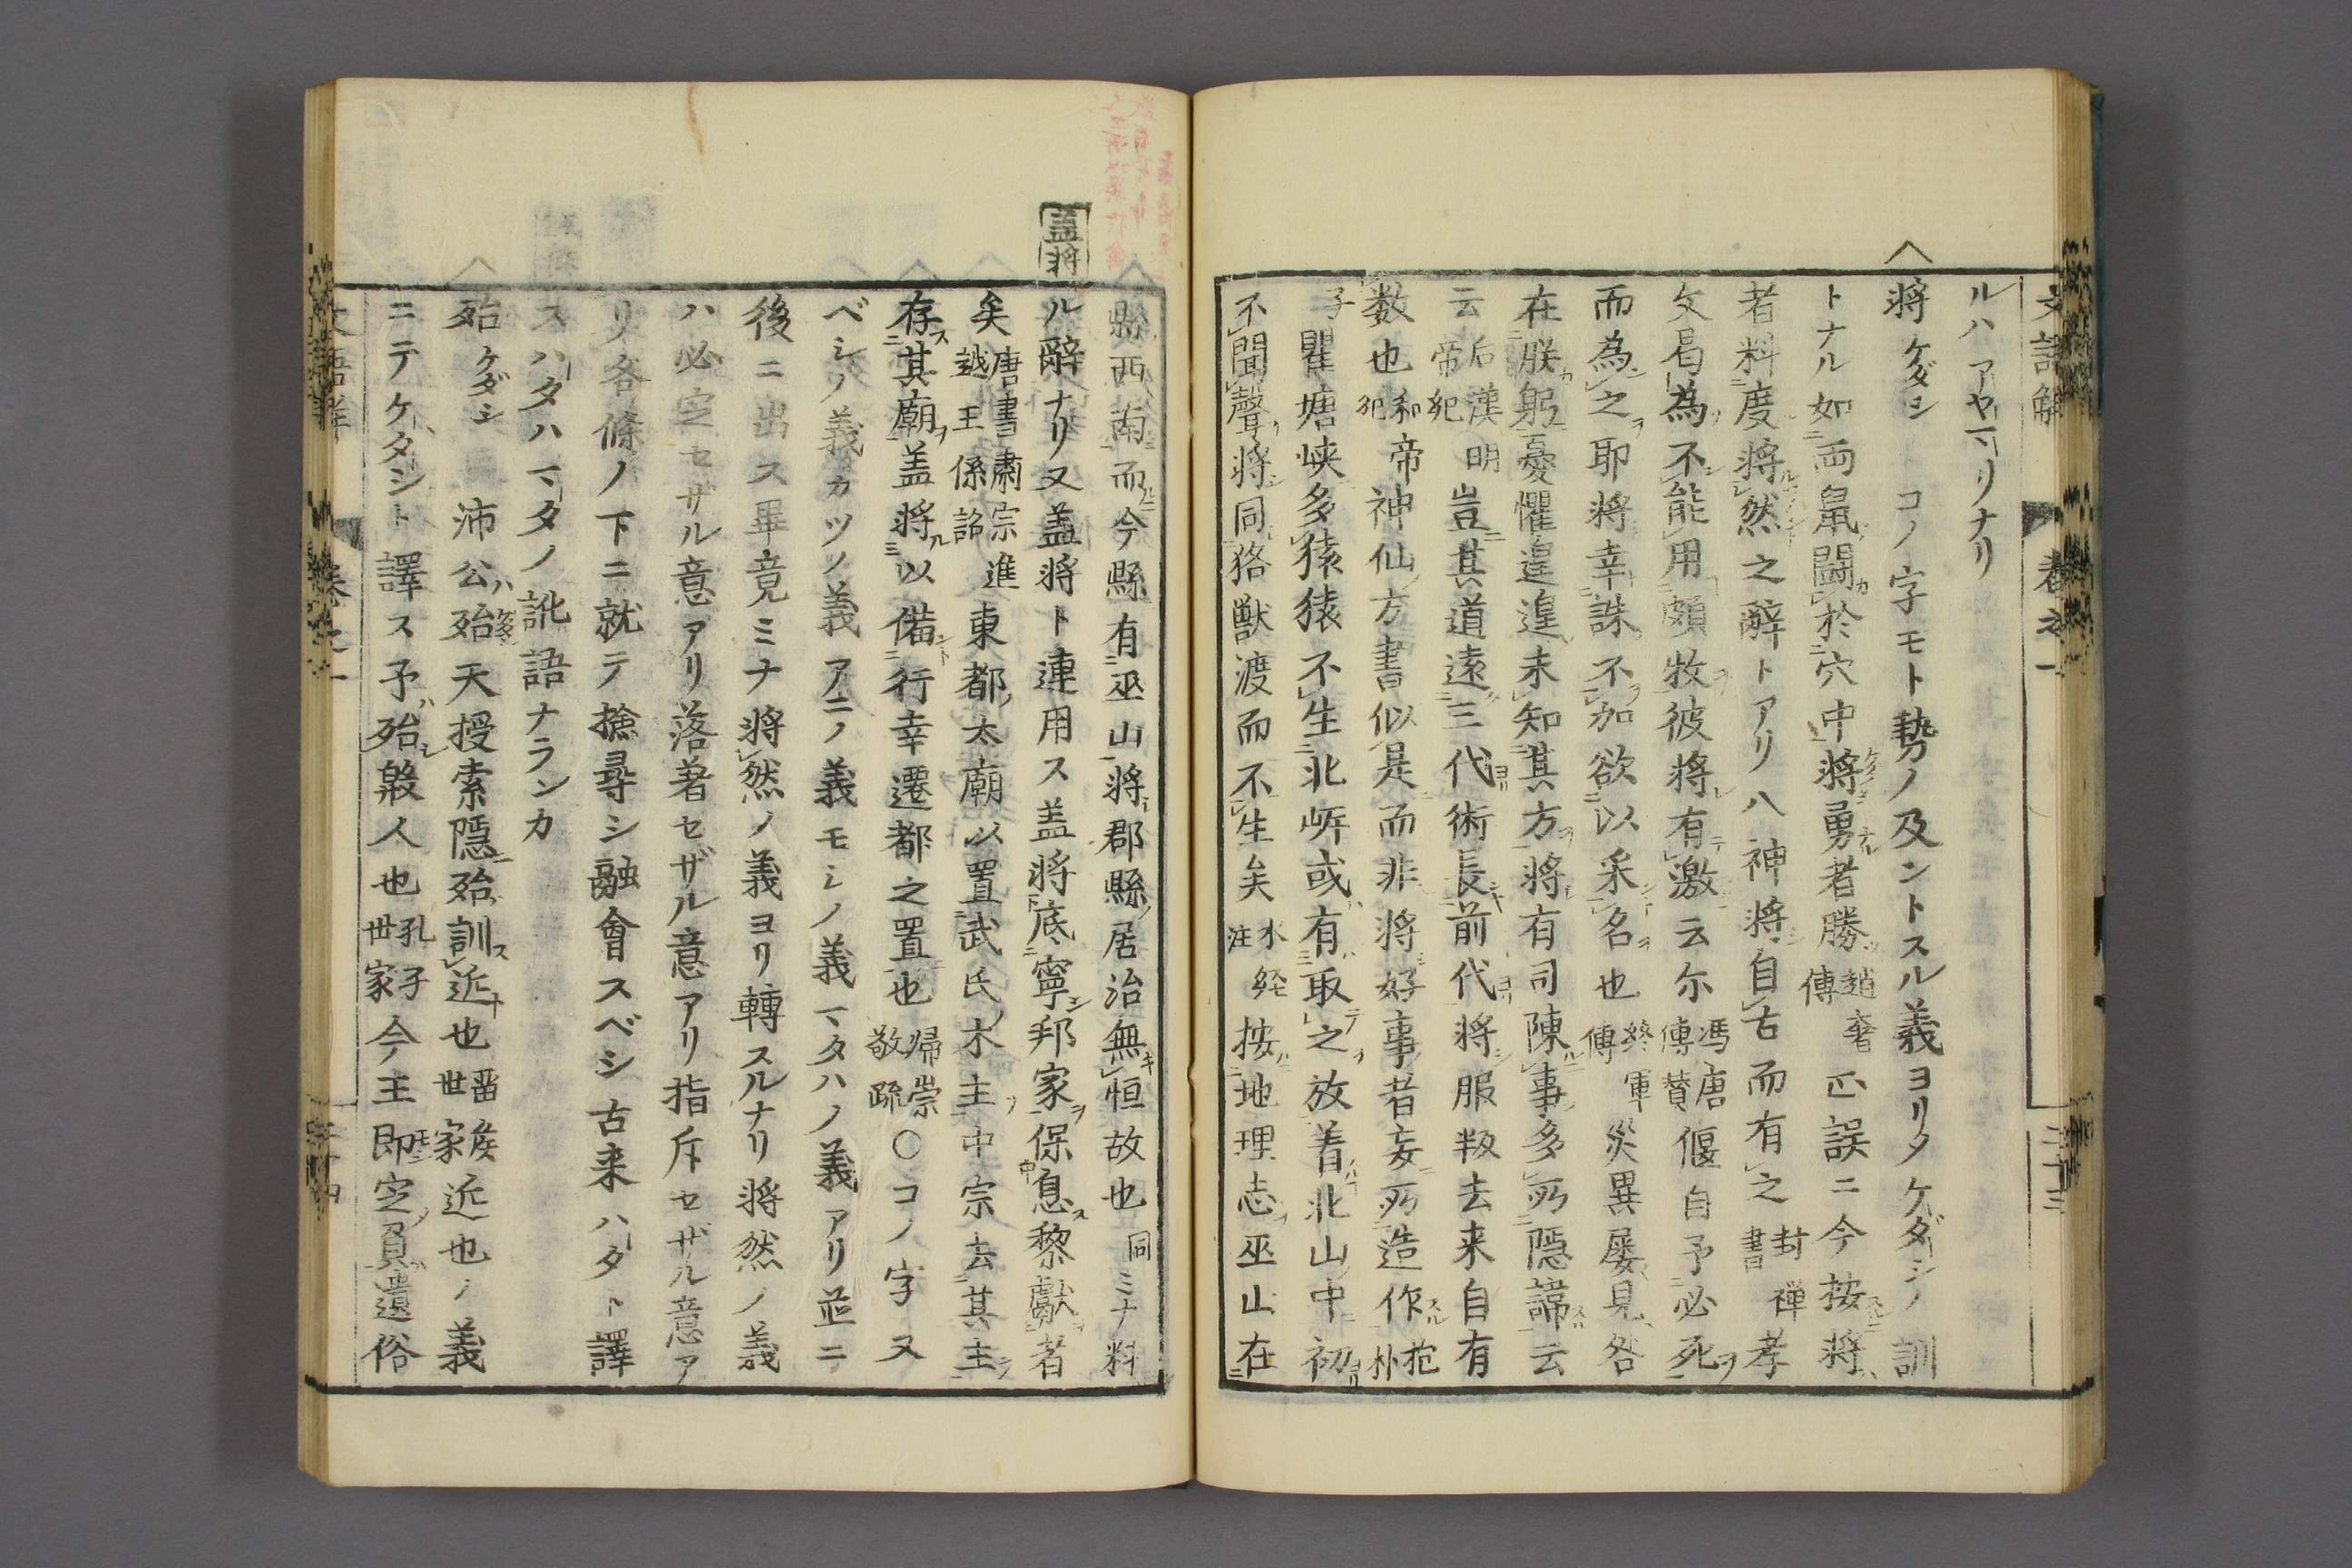 ルハアヤマリナリ
將 ケダシ コノ字モト勢ノ及ントスル義ヨリタケダシノ訓
トナル如両鼠闘於穴中將勇者勝 趙奢傳 正誤ニ今按將
者料度將然之辭トアリハ神將自古而有之 封禅書 孝
文曷為不能用頗牧彼將有激云尓 馮唐傳賛 偃自予必死
而為之耶將幸誅不加欲以釆名也 終軍傳 災異屡見咎
在朕躬憂懼遑遑未知其方將有司陳事多所隠諱云
云 后漢明帝紀 豈其道遠三代術長前代將服叛去来自有
数也 和帝紀 神仙方書似是而非將好事者妄所造作 抱朴
子 瞿塘峡多猿猿不生北岸或有取之放着北山中初
不聞聲將同狢獣渡而不生矣 水経注 按地理志巫山在
縣西南而今縣有巫山將郡縣居治無恒故也 同 ミナ料
蓋將
ル辭ナリ又蓋将ト連用ス蓋將底寧邦家保息黎獻者
矣 唐書粛宗進越王係詔 東都太廟以置武氏木主中宗去其主
存其廟蓋將以備行幸遷都之置也 帰崇敬疏 ○コノ字又
ベシノ義カツノ義アニノ義モシノ義マタハノ義アリ並ニ
後ニ出ス畢竟ミナ將然ノ義ヨリ轉スルナリ將然ノ義
ハ必定セザル意アリ落着セザル意アリ指斥セザル意ア
リ各條ノ下ニ就テ撿尋シ融會スベシ古来ハタト譯
スハタハマタノ訛語ナランカ
殆 ケダシ 沛公殆天授索隠殆訓近也 畱矦世家 近也ノ義
ニテケタシト譯ス予殆殷人也 孔子世家 今王即定負遺俗
文語解 巻之一 二十三